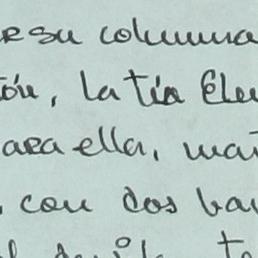 su columna
ón, la tía Ele
para ella, mai
, con dos ba